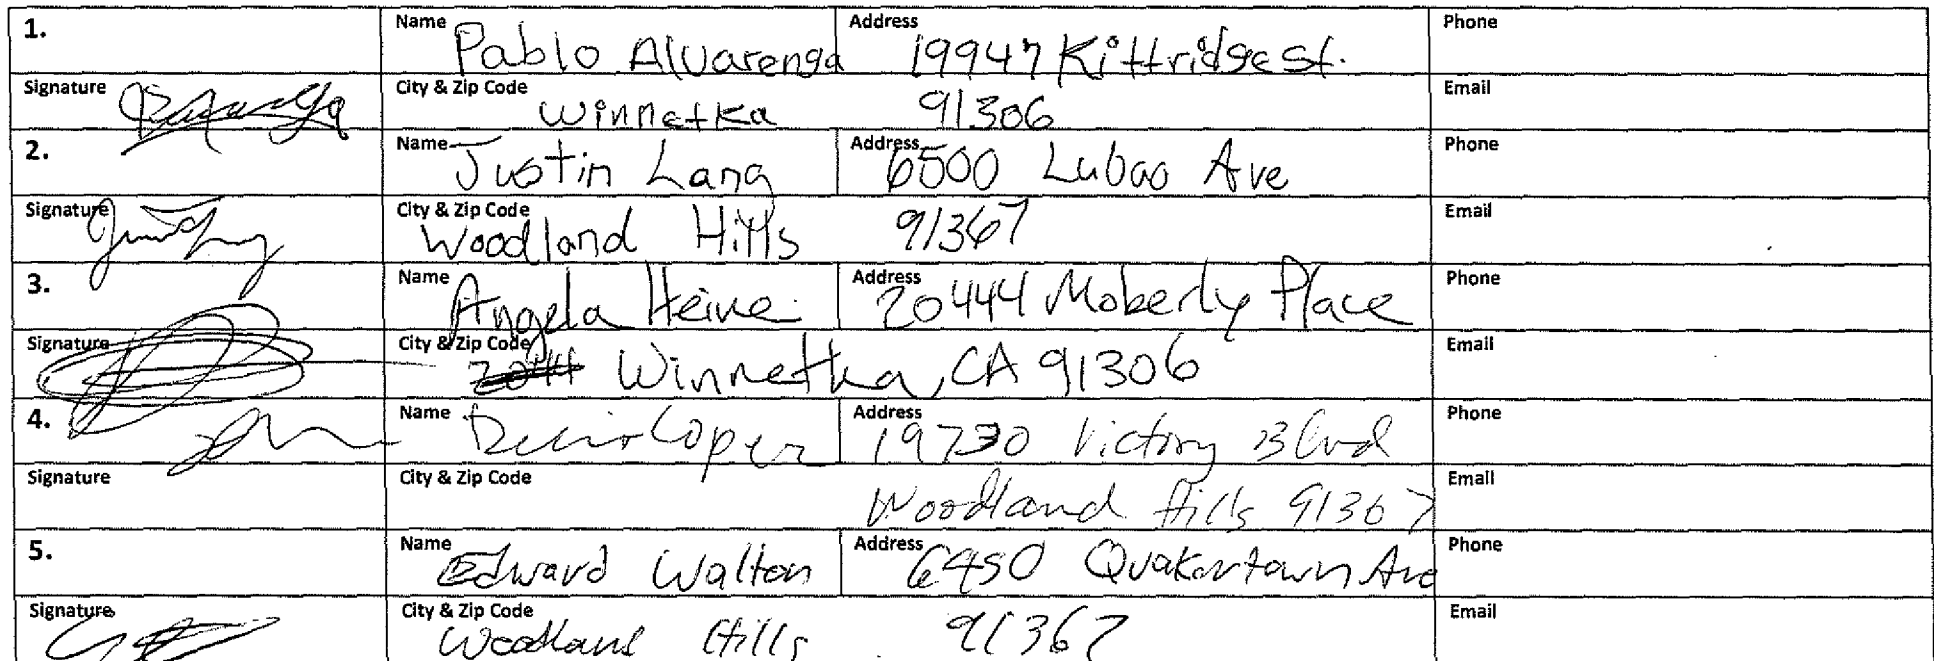 1. Name Pablo Alvarenga Address 19947 Kittridge St. Phone
Signature City & Zip Code Winnetka 91306 Email
2. Name Justin Lang Address 6500 Lubao Ave Phone
Signature City & Zip Code Woodland Hills 91367 Email
3. Name Angela Heine Address 20444 Moberly Place Phone
Signature City & Zip Code Winnetka, CA 91306 Email
4. Name Address 19730 Victory Blvd Phone
Signature City & Zip Code Woodland Hills 91367 Email
5. Name Edward Walton Address 6450 Quakertown Ave Phone
Signature City & Zip Code Woodland Hills 91367 Email